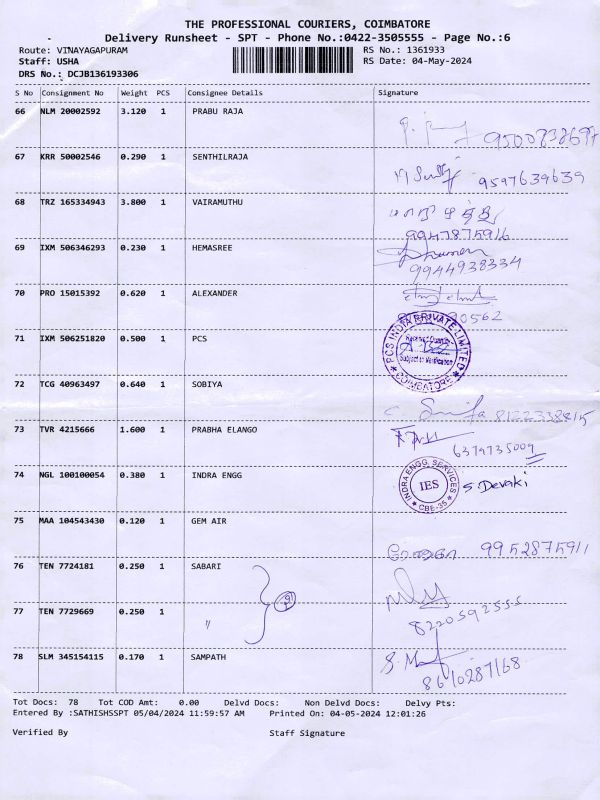 THE PROFESSIONAL COURIERS, COIMBATORE
Delivery Runsheet - SPT - Phone No.:0422-3505555 - Page No.:6
Route: VINAYAGAPURAM RS No.: 1361933
Staff: USHA RS Date: 04-May-2024
DRS No.: DCJB136193306
S No Consignment No Weight PCS Consignee Details Signature
66 NLM 20002592 3.120 1 PRABU RAJA
67 KRR 50002546 0.290 1 SENTHILRAJA
9597639639
68 TRZ 165334943 3.800 1 VAIRAMUTHU
9947875916
69 IXM 506346293 0.230 1 HEMASREE
9944938334
70 PRO 15015392 0.620 1 ALEXANDER
71 IXM 506251820 0.500 1 PCS
PCS INDIA PRIVATE LIMITED
Subject to Verification
COIMBATORE
72 TCG 40963497 0.640 1 SOBIYA
8122338815
73 TVR 4215666 1.600 1 PRABHA ELANGO
6379735009
74 NGL 100100054 0.380 1 INDRA ENGG
INDRA ENGG. SERVICES
IES S. Devaki
CBE-35
75 MAA 104543430 0.120 1 GEM AIR
9952875911
76 TEN 7724181 0.250 1 SABARI
8220592555
77 TEN 7729669 0.250 1 "
78 SLM 345154115 0.170 1 SAMPATH
8610287168
Tot Docs: 78 Tot COD Amt: 0.00 Delvd Docs: Non Delvd Docs: Delvy Pts:
Entered By :SATHISHSSPT 05/04/2024 11:59:57 AM Printed On: 04-05-2024 12:01:26
Verified By Staff Signature